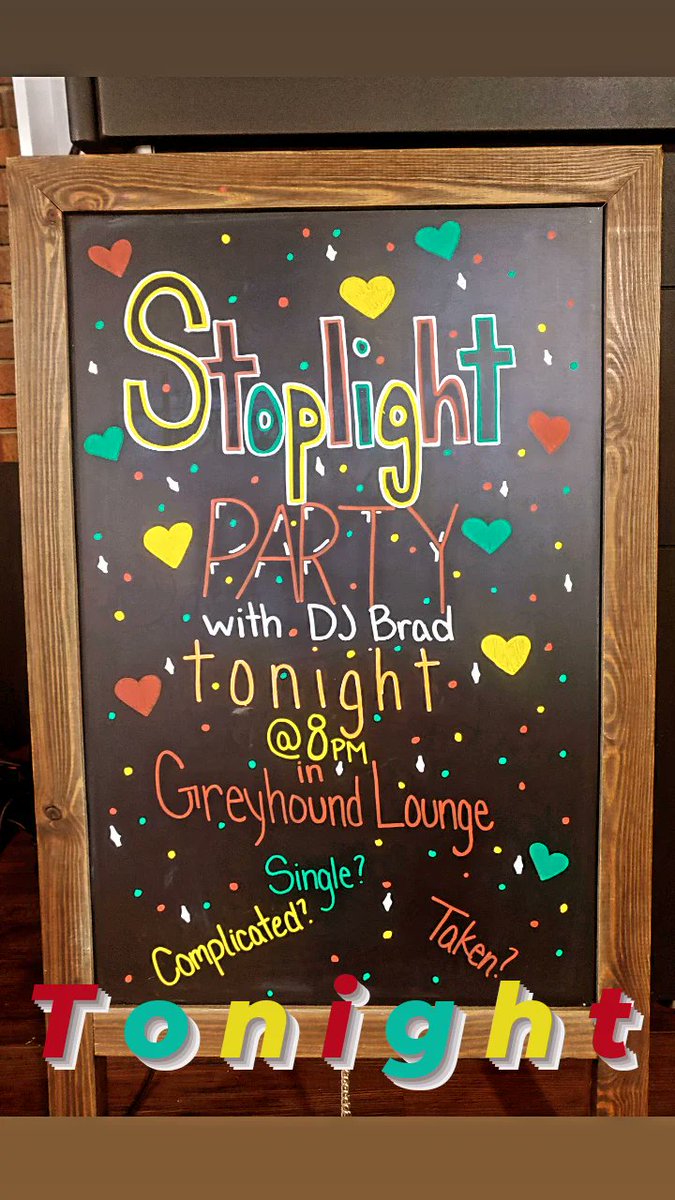 Stoplight
PARTY
with DJ Brad
tonight
@8PM
in
Greyhound Lounge
Single?
Complicated?
Taken?
Tonight